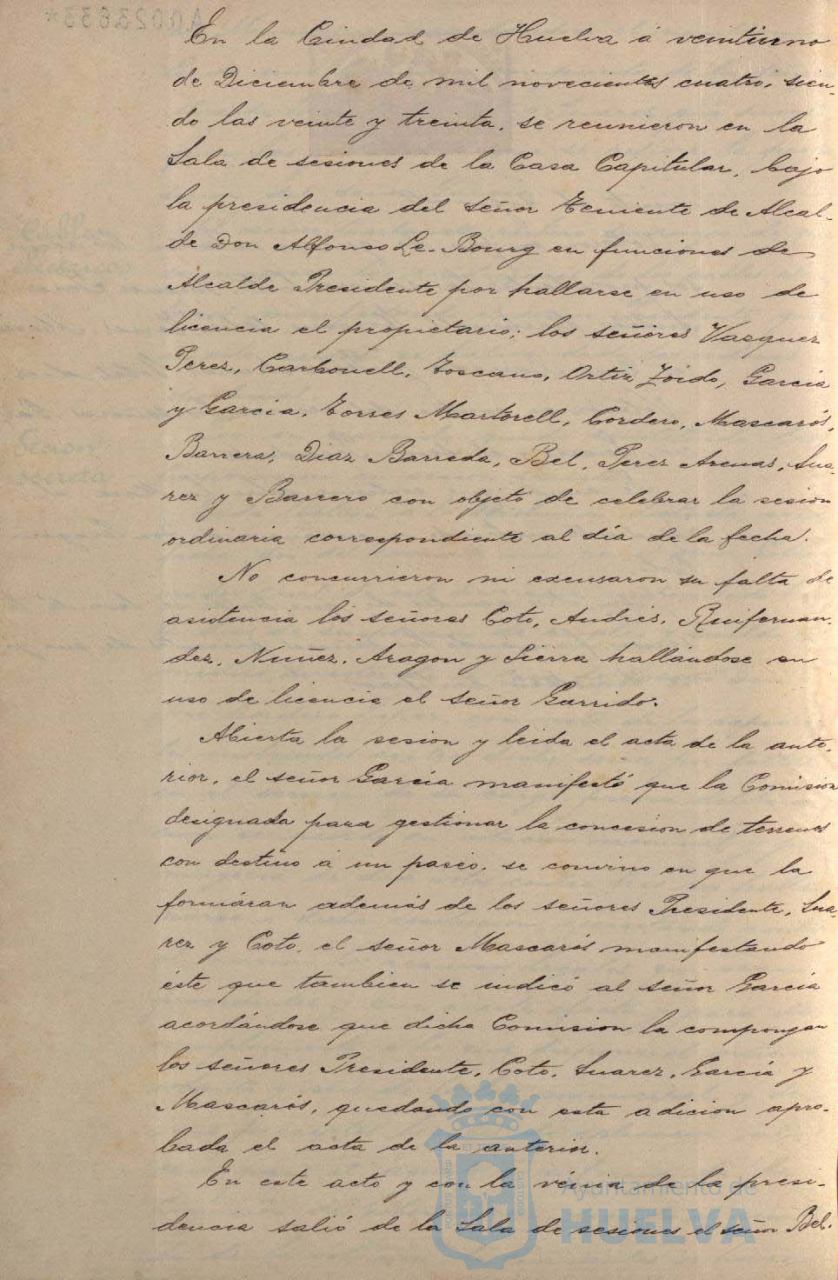 En la Ciudad de Huelva á veintiuno
de Diciembre de mil novecientos cuatro, sien-
do las veinte y treinta, se reunieron en la
Sala de sesiones de la Casa Capitular, bajo
la presidencia del señor Teniente de Alcal-
de Don Alfonso Le-Bourg en funciones de
Alcalde Presidente por hallarse en uso de
licencia el propietario; los señores Vazquez
Perez, Carbonell, Toscano, Ortiz, Zoido, Garcia
y Garcia, Torres Martorell, Cordero, Mascarós,
Barrera, Diaz Barreda, Bel, Perez Arenas, Sua-
rez y Barrero con objeto de celebrar la sesion
ordinaria correspondiente al día de la fecha.
No concurrieron ni excusaron su falta de
asistencia los señores Coto, Andrés, Ruifernan-
dez, Nuñez, Aragon y Sierra hallándose en
uso de licencia el señor Garrido.
Abierta la sesion y leida el acta de la ante-
rior, el señor García manifestó que la Comision
designada para gestionar la concesion de terrenos
con destino á un paseo, se convino en que la
formáran además de los señores Presidente, Sua-
rez y Coto, el señor Mascarós manifestando
éste que tambien se indicó al señor García
acordándose que dicha Comision la compongan
los señores Presidente, Coto, Suarez, García y
Mascarós, quedando con esta adicion apro-
bada el acta de la anterior.
En este acto y con la vénia de la presi-
dencia salió de la Sala de sesiones el señor Bel.
Ayuntamiento de
HUELVA